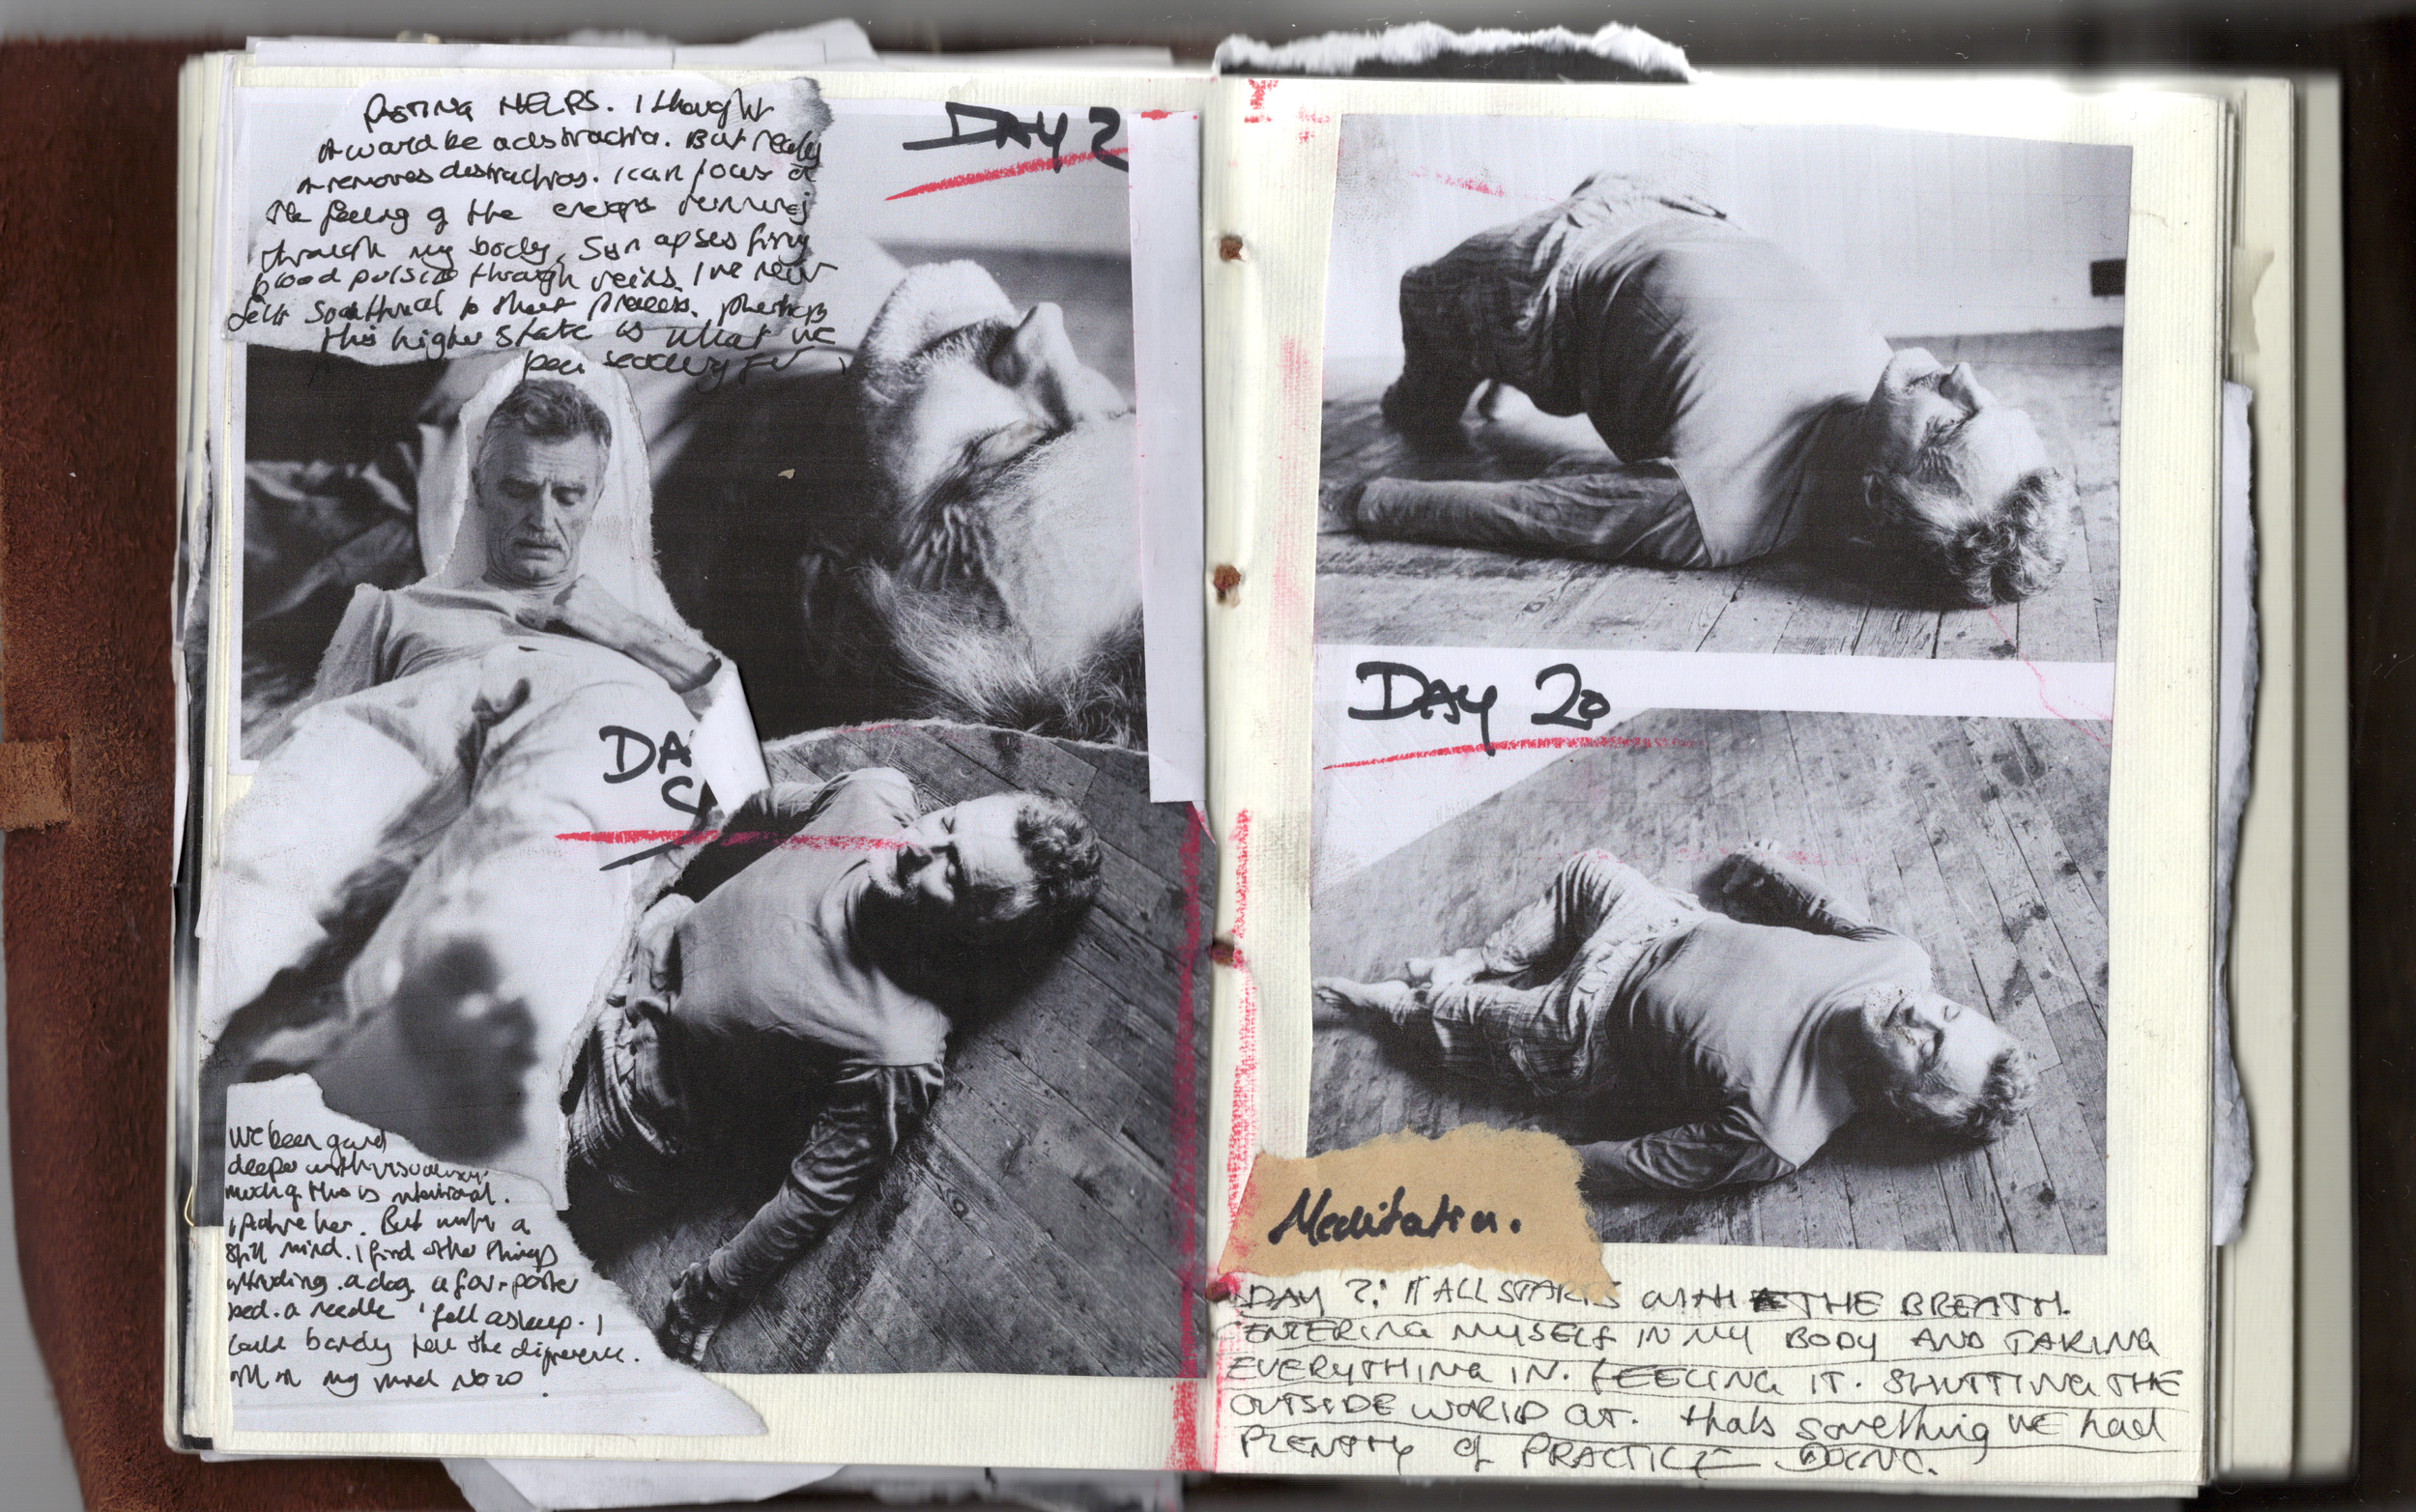 FASTING HELPS. I thought
it would be a distraction. But really
it removes distractions. I can focus on
the feeling of the energy running
through my body. Synapses firing
blood pulsing through veins. I've never
felt so attuned to that process. perhaps
this higher state is what we
been searching for
DAY 2
DA
I've been going
deeper with visualising.
much of this is intentional.
But with a
still mind. I find other things
intruding. a dog. a four-poster
bed. a needle. I fell asleep. I
could barely tell the difference.
my mind now
DAY 20
Meditation.
DAY ?: IT ALL STARTS WITH THE BREATH.
ENTERING MYSELF IN MY BODY AND TAKING
EVERYTHING IN. FEELING IT. SHUTTING THE
OUTSIDE WORLD OUT. thats something WE had
PLENTY of PRACTICE DOING.